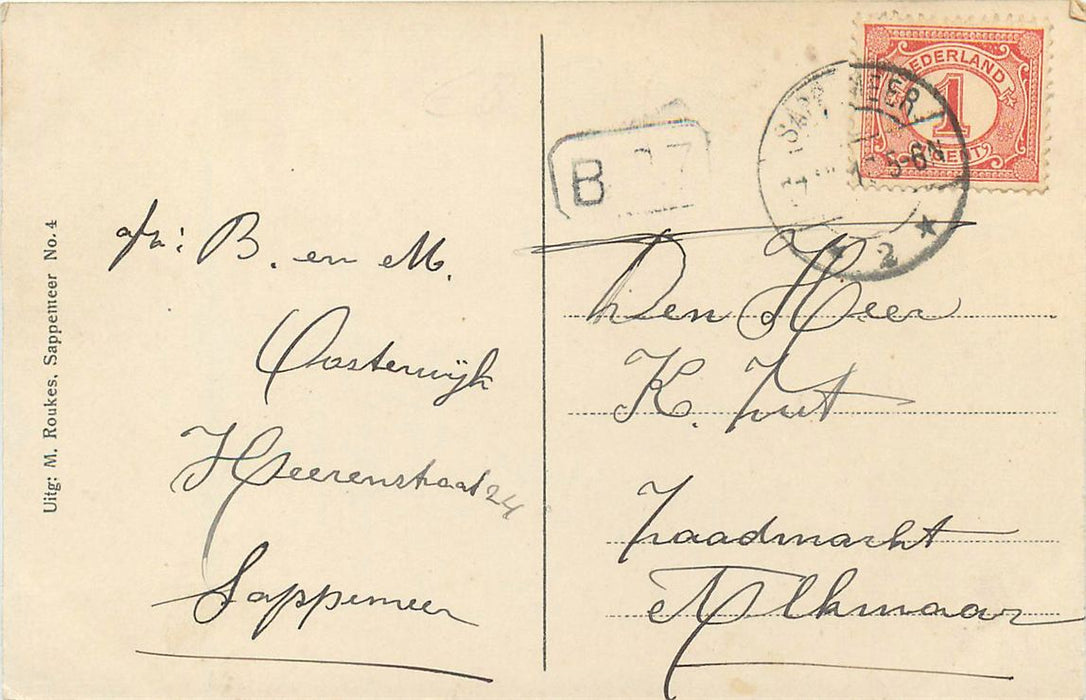 Uitg: M. Roukes, Sappemeer No. 4
afz: B. en M.
Oosterwijk
Heerenstraat 24
Sappemeer
NEDERLAND
1
CENT
5-6N
2
B
Den Heer
K. Put
Zaadmarkt
Alkmaar